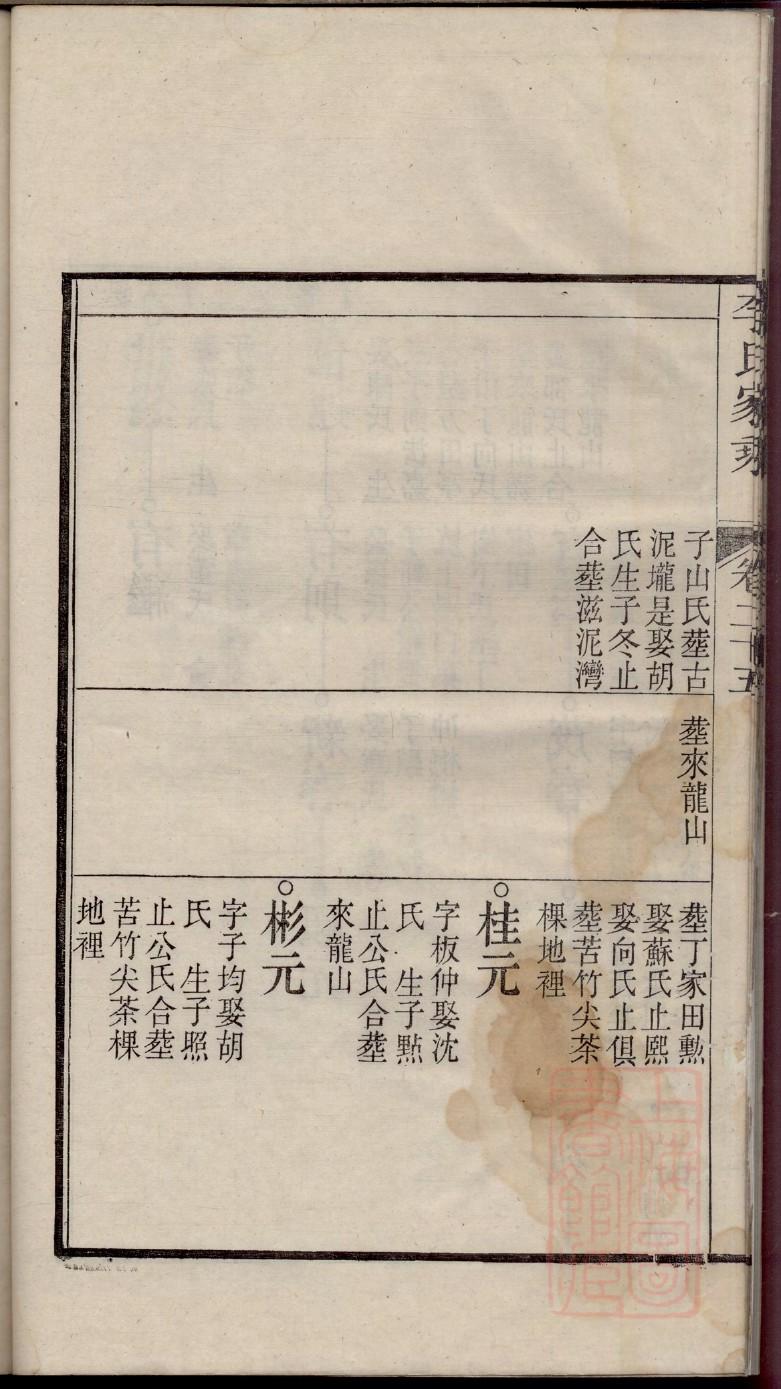 李氏家乘
卷二十五
子山氏塟古
泥壠是娶胡
氏生子冬止
合塟滋泥灣
塟來龍山
塟丁家田勲
娶蘇氏止熙
娶向氏止俱
塟苦竹尖茶
棵地裡
○桂元
字板仲娶沈
氏 生子㸃
止公氏合塟
來龍山
○彬元
字子均娶胡
氏 生子照
止公氏合塟
苦竹尖茶棵
地裡
上海圖
書館藏